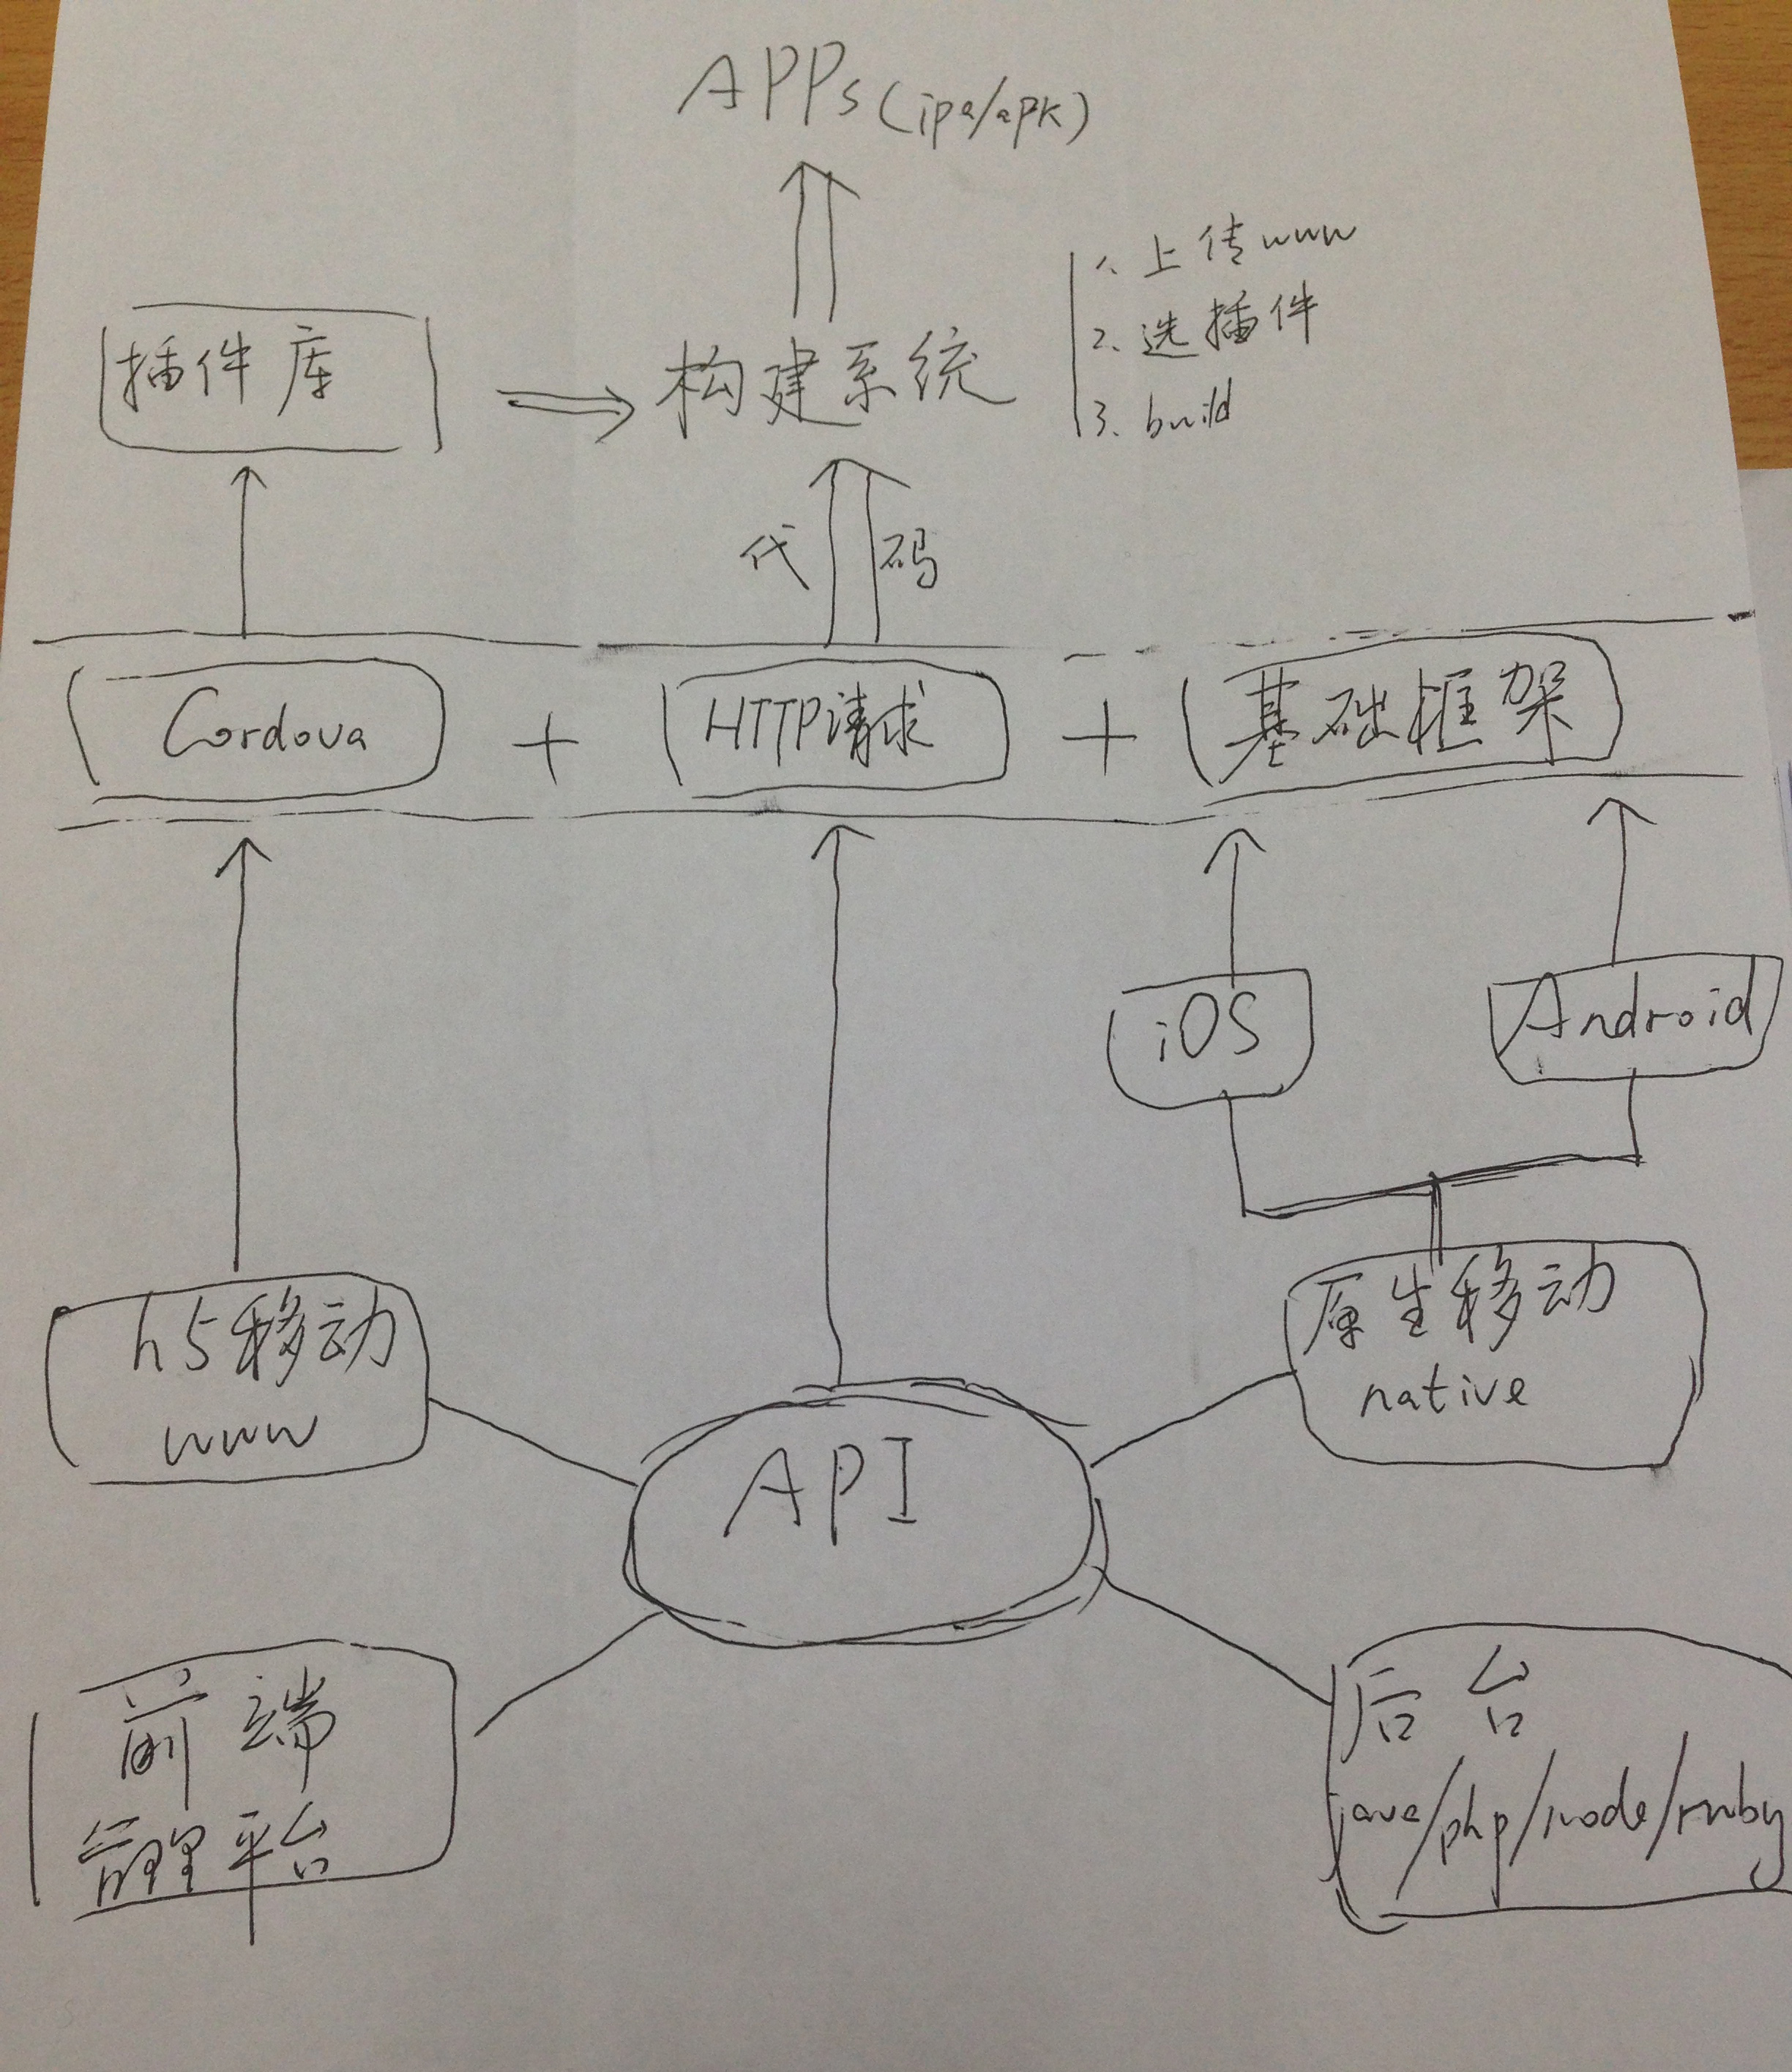 APPs (ipa/apk)
1. 上传www
2. 选插件
3. build
插件库
构建系统
代码
Cordova
+
HTTP请求
+
基础框架
iOS
Android
h5移动
www
原生移动
native
API
前端
管理平台
后台
java/php/node/ruby